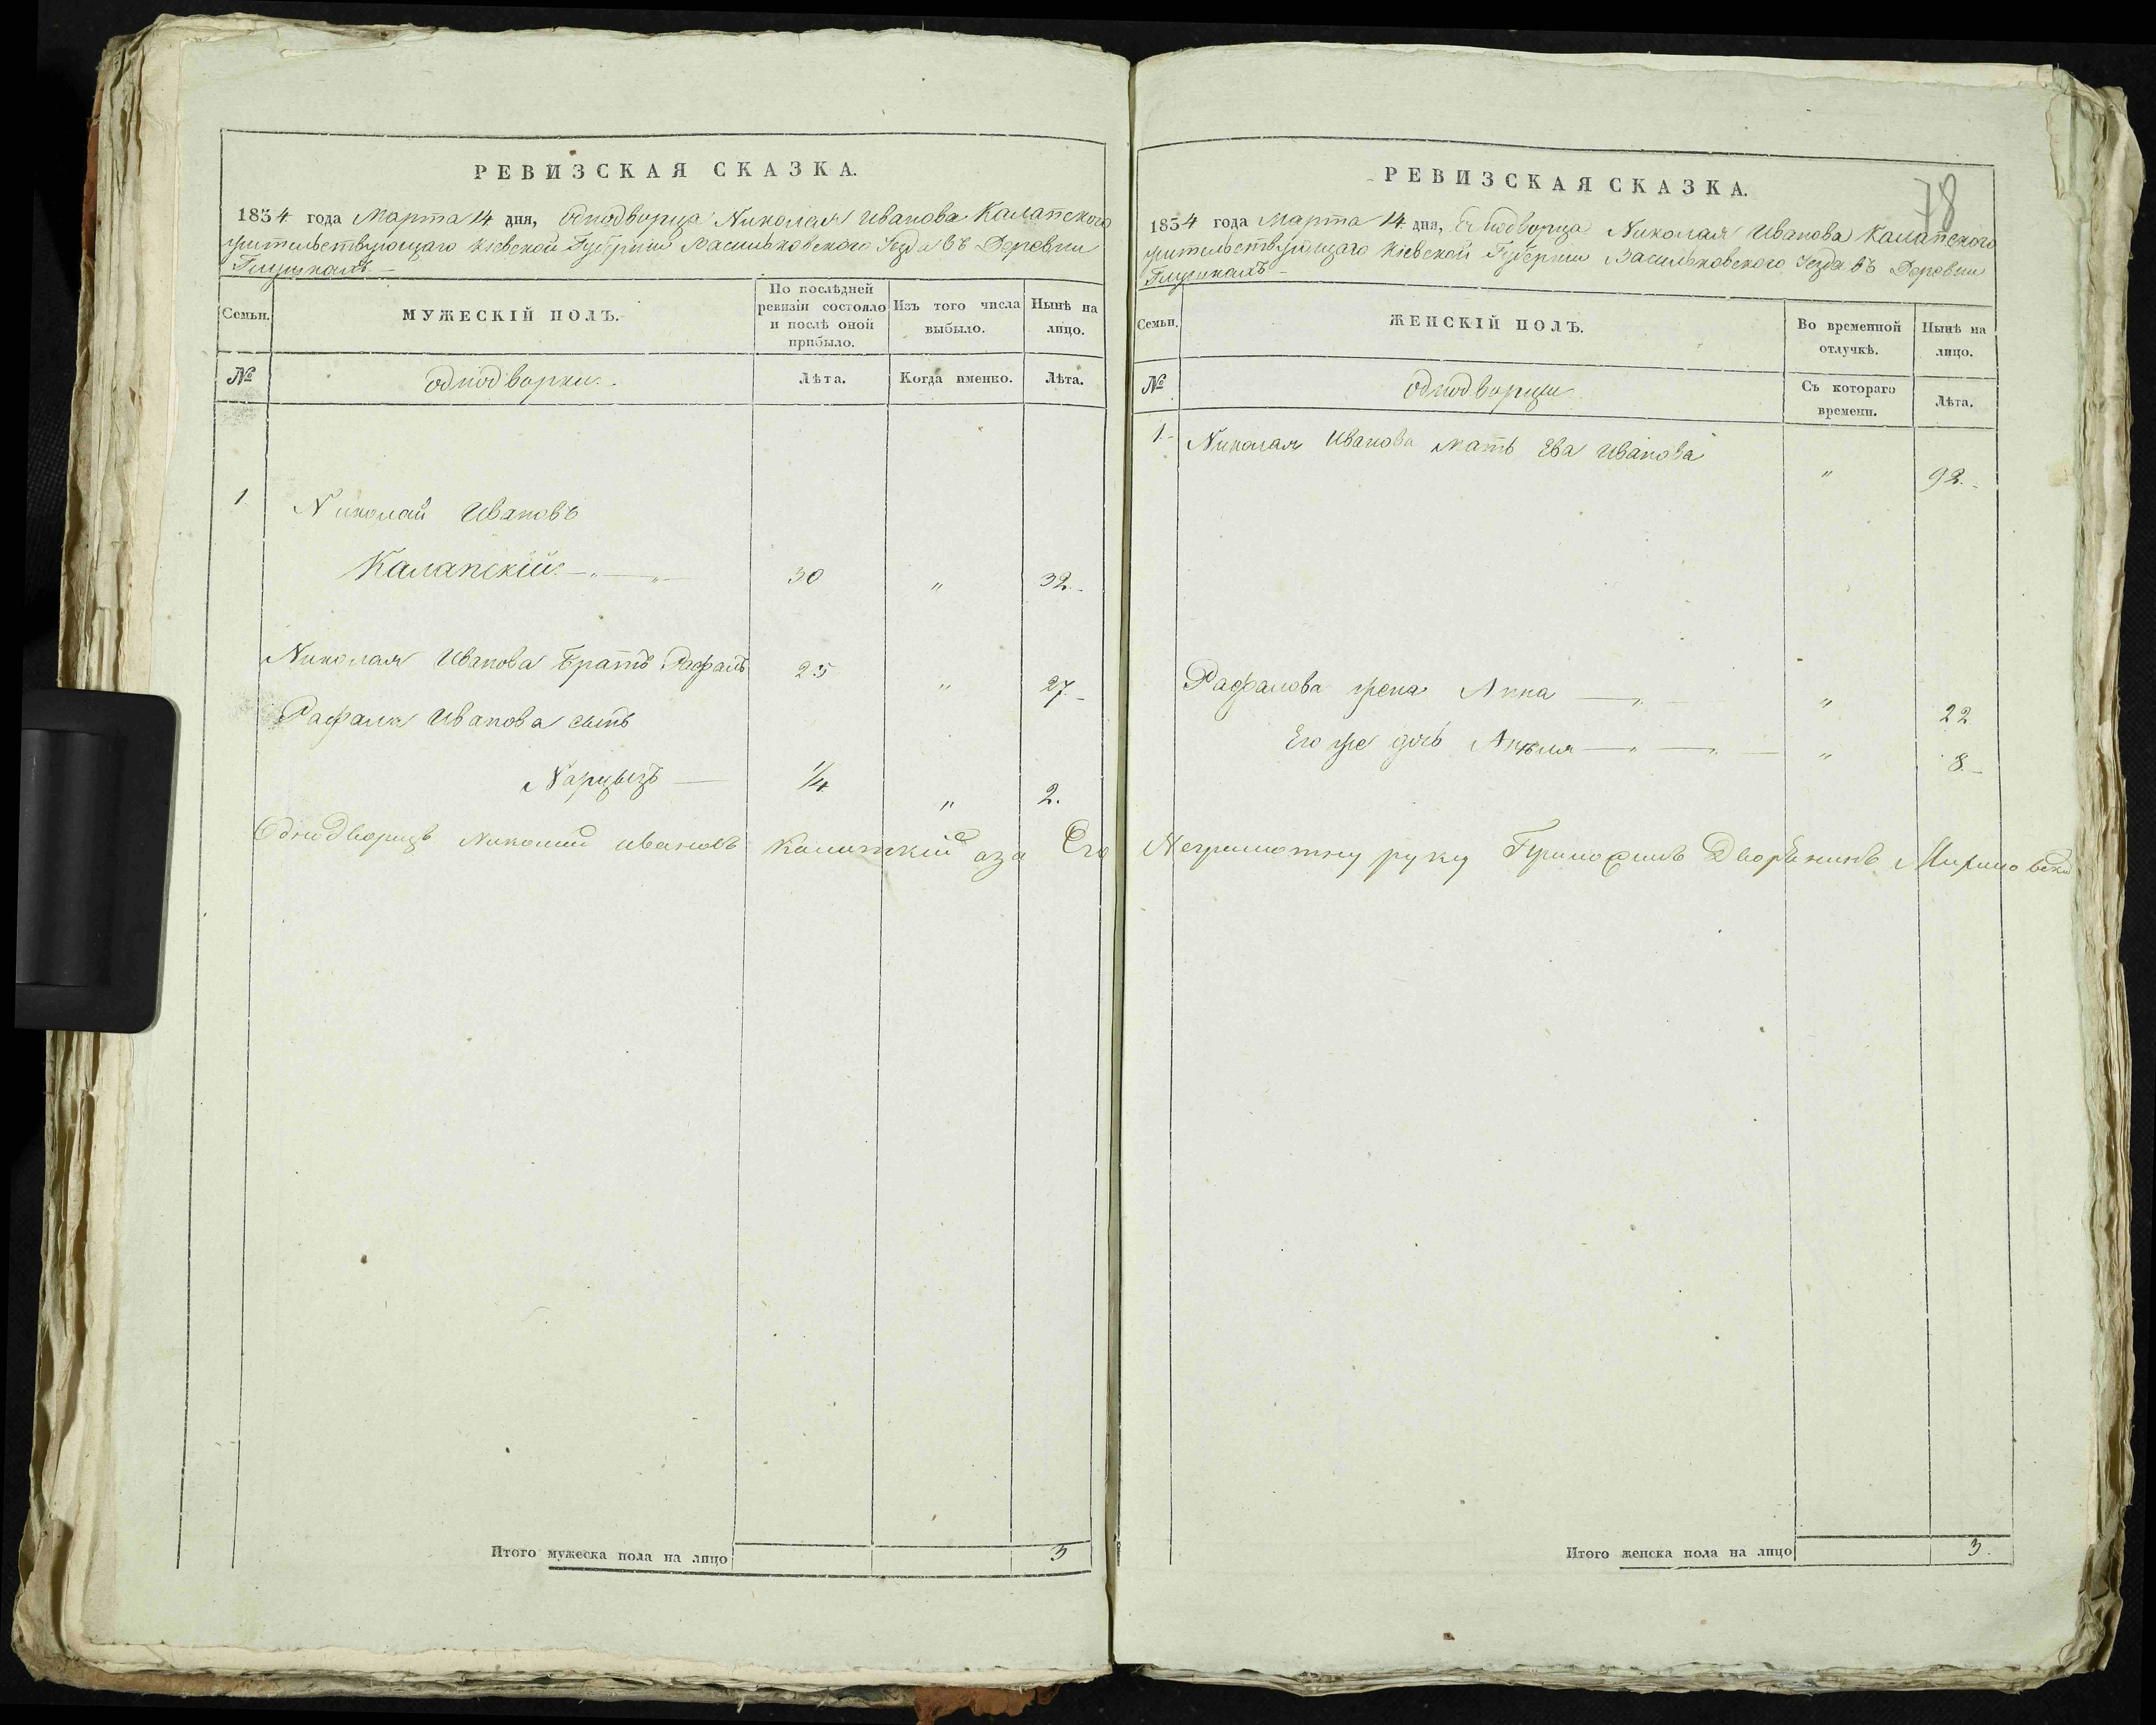 РЕВИЗСКАЯ СКАЗКА.
1854 года Марта 14 дня, Однодворца Николая Иванова Калапского
жительствующаго Кіевской Губерніи Васильковского Уезда въ Деревни
Семьи.
МУЖЕСКІЙ ПОЛЪ.
По послѣдней ревизіи состояло и послѣ оной прибыло.
Изъ того числа выбыло.
Нынѣ на лицо.
№
однодворцы.
Лѣта.
Когда именно.
Лѣта.
1. Николай Ивановъ
Калапскій 30 " 32.
Николая Иванова братъ Рафалъ 25 " 27.
Рафала Иванова сынъ
Нарцызъ 1/4 " 2.
Однодворецъ Николай Ивановъ а за Его
Итого мужеска пола на лицо 3
78
РЕВИЗСКАЯ СКАЗКА.
1854 года Марта 14 дня, Однодворца Николая Иванова Калапского
жительствующаго Кіевской Губерніи Васильковского Уезда въ Деревни
Семьи.
ЖЕНСКІЙ ПОЛЪ.
Во временной отлучкѣ.
Нынѣ на лицо.
№
Однодворцы
Съ котораго времени.
Лѣта.
1. Николая Иванова мать Ева Иванова " 92.
Рафалова жена Анна " 22
Его же дочь " 8.
Неграмотну руку Дворянинъ
Итого женска пола на лицо 3.